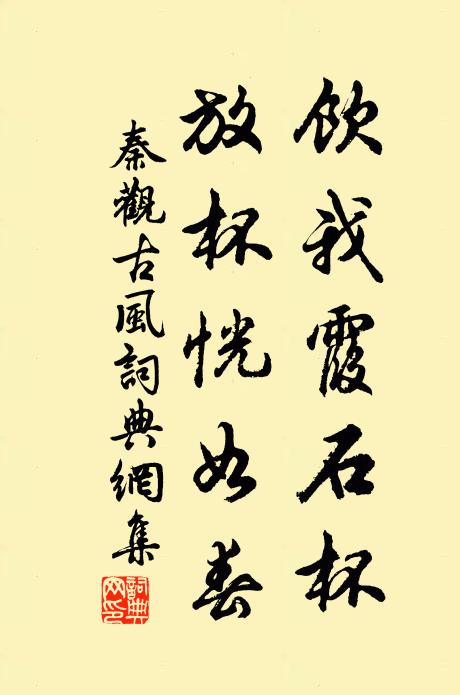 飲我霞石杯
放杯恍如春
秦觀古風詞典網集
詞典網印